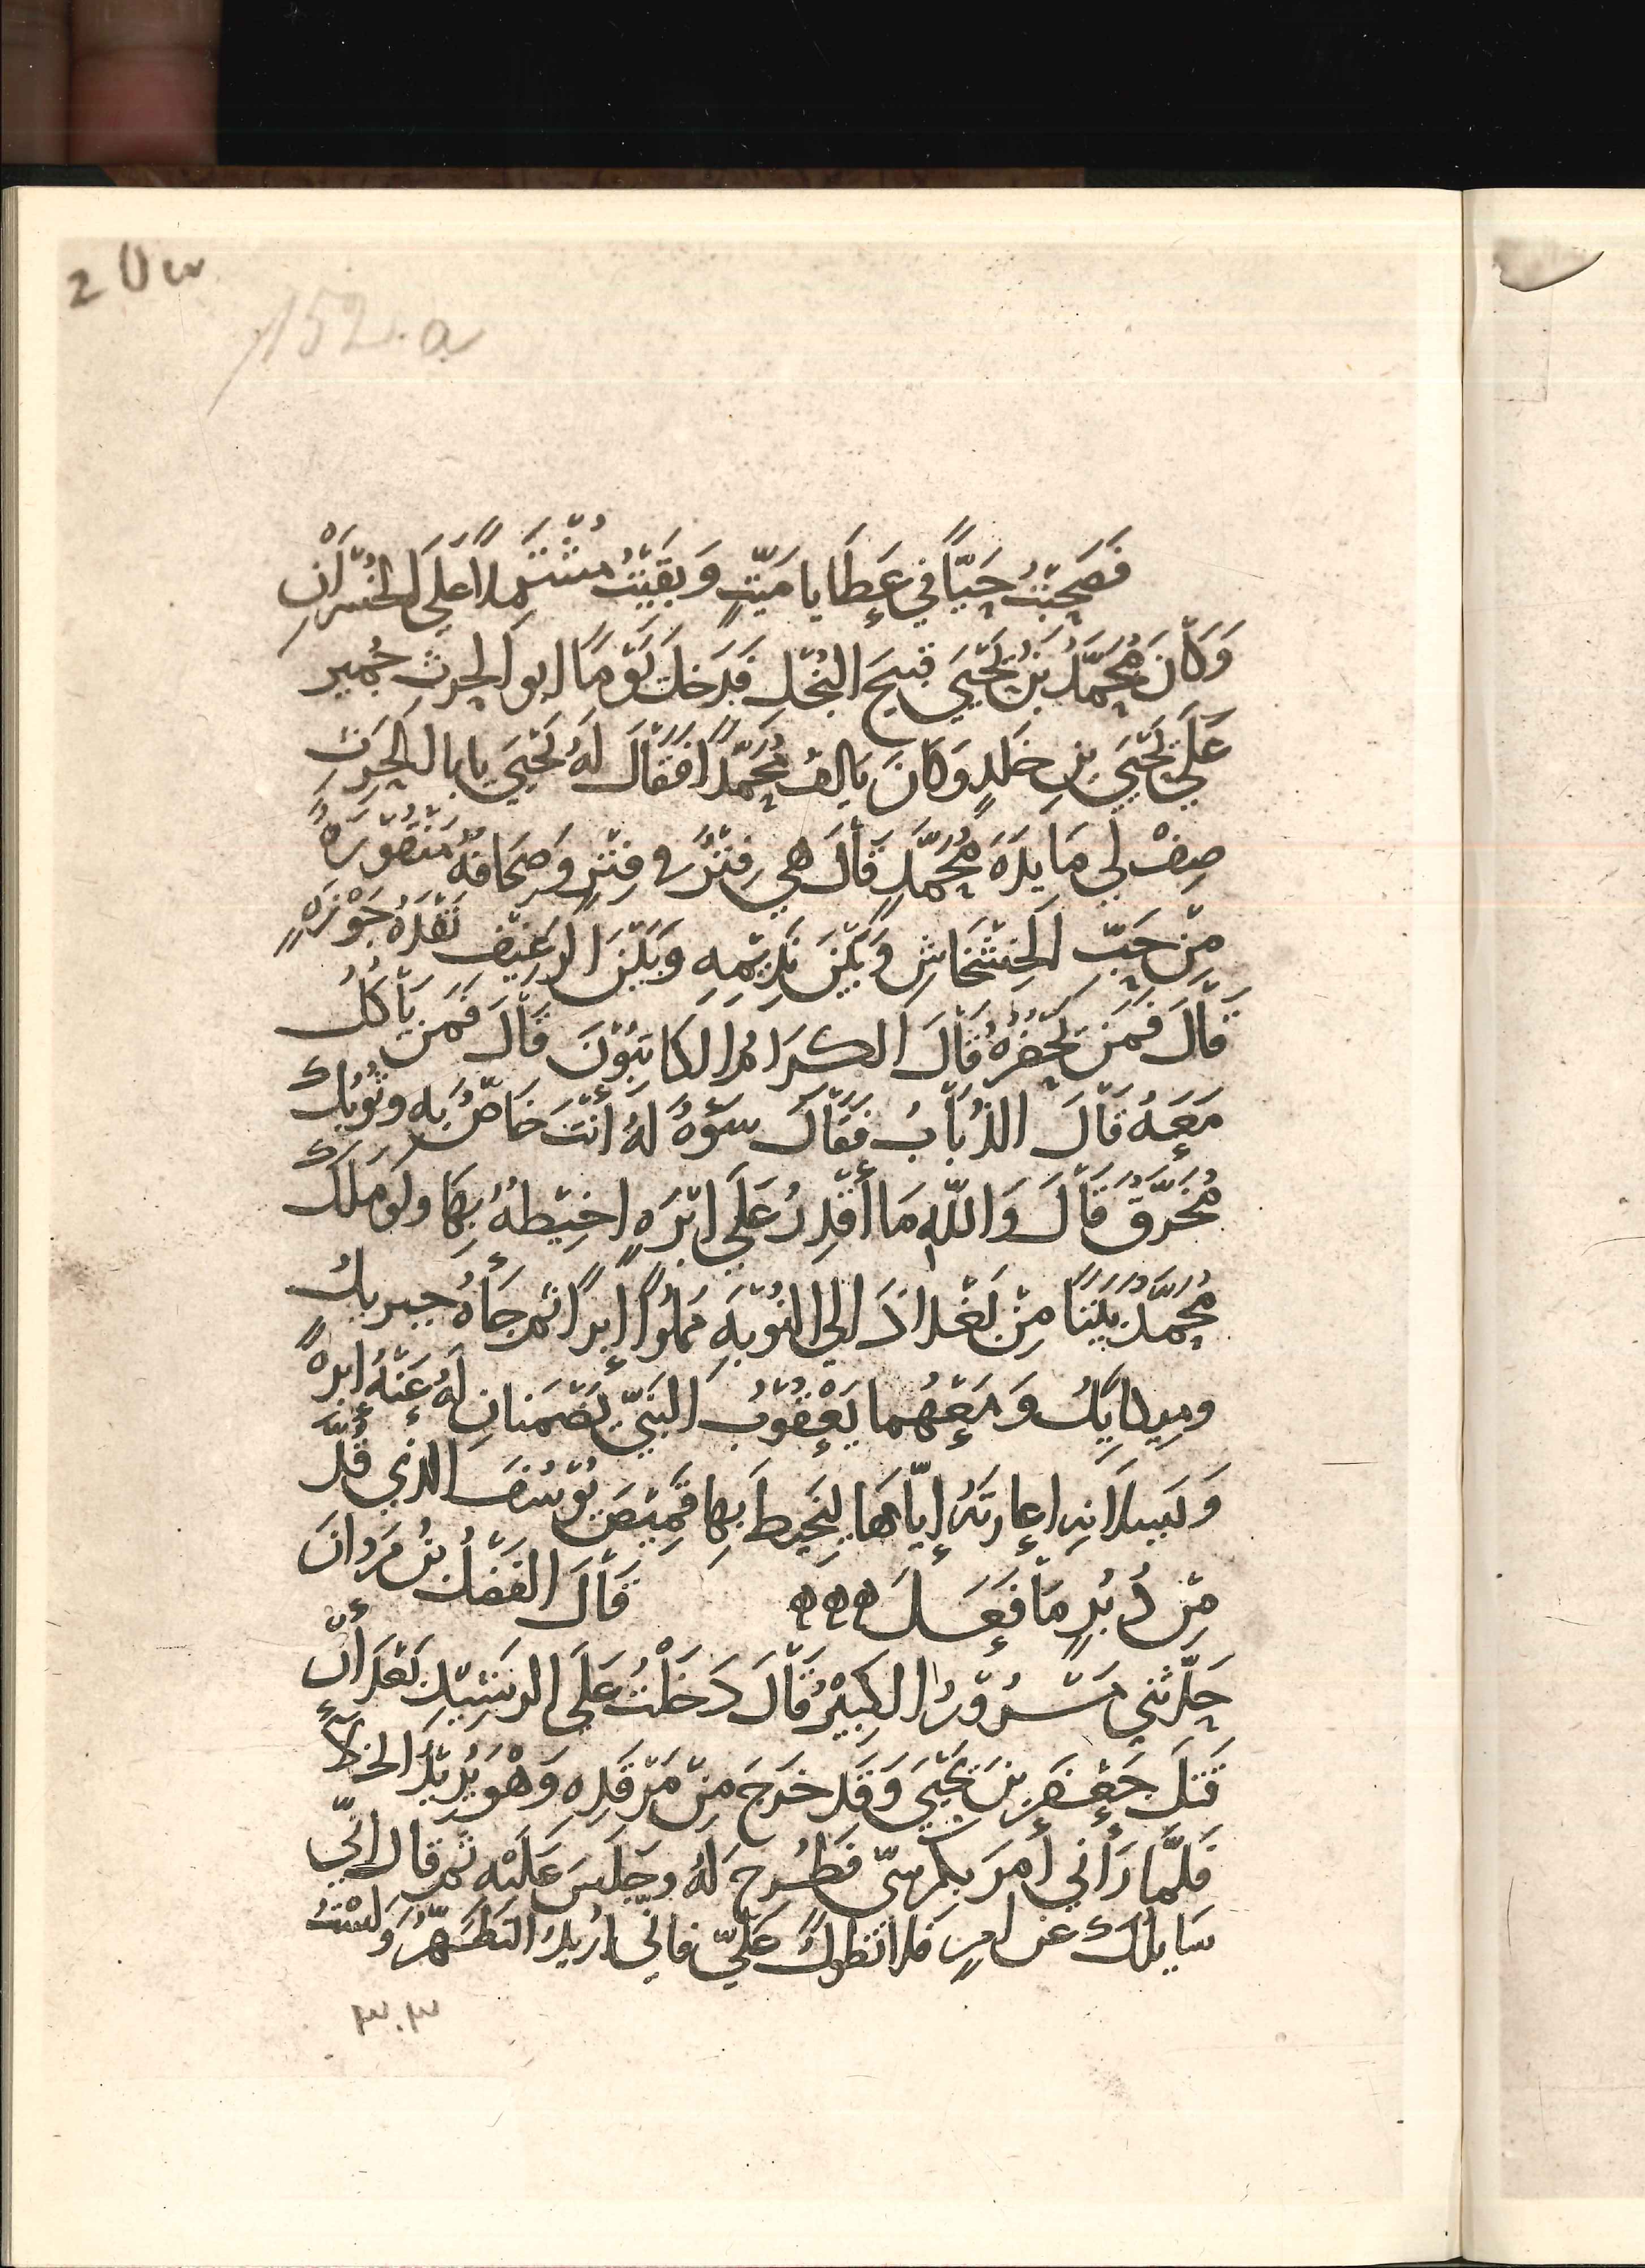 2 Uw
152.a
فَصَحِبْتُ حَيًّا فِي عَطَايا مَيِّتٍ وَبَقِيْتُ مُشْتَمِلًا عَلَى الخُسْرَانِ
وَكَانَ مُحَمَّدُ بْنُ يَحْيَى قبيحَ البُخْلِ فَدَخَلَ يَوْمًا ابو الحرثِ جُمير
عَلَى يَحْيَى بنِ خلدٍ وَكَانَ يَالِفُ مُحَمَّدًا فَقَالَ لَهُ يَحْيَى يابا الحرثِ
صِفْ لي مَايدَةَ مُحَمَّدٍ قَالَ هي فِتْرٌ في فِتْرٍ وَصِحَافَهُ مَنْقُوْرَةٌ
مِنْ حَبِّ الخَشْخَاشِ وَبَيْنَ نَدِيْمِهِ وَبَيْنَ الرغيْفِ نَقْدَهُ جَوْزَةٍ
قَالَ فَمَنْ يَحْضُرُهُ قَالَ الكرَامُ الكَاتِبُوْنَ قَالَ فَمَن يَأْكُلُ
مَعَهُ قَالَ الذُبَابُ فَقَالَ سَوْءَةً لَهُ أَنْتَ خَاصٌّ بِهِ وثَوْبُكَ
مُخَرَّقٌ قَالَ وَاللهِ مَا أَقْدِرُ عَلَى ابْرَةٍ اخِيْطهُ بِهَا ولو مَلَكَ
مُحَمَّدٌ بَيْتًا مِنْ بَغْدَادَ الى النُوْبَةِ مَمْلُوًا إِبَرًا ثم جَأهُ جبريلُ
وميكايِيلُ وَمَعَهُما يَعْقُوْبُ النَبِيّ يَضْمَنانِ لَهُ عَنْهُ ابرةً
وَيَسلانِهِ اعارَتَهُ إِيّاهَا لِيَخيطَ بِها قَمِيْصَ يُوْسُفَ الذي قُدَّ
مِنْ دُبُرٍ مَا فَعَلَ ههه قَالَ الفَضْلُ بْنُ مَرْوانَ
حَدّثني مَسْرُوْرُ الكبيْرُ قَالَ دَخَلْتُ عَلَى الرشِيْدِ بَعْدَ أنْ
قَتَلَ جَعْفَرَ بنَ يَحْيَى وَقَد خرَجَ مِنْ مَرْقَدِهِ وَهْوَ يُرِيْدُ الخلآءَ
فَلَمَّا رَأَني أَمَرَ بِكُرسِيّ فَطُرِحَ لَهُ وجَلَسَ عَلَيْهِ ثم قال انّي
سَايلُكَ عَن امرٍ فلا تُطوّل عَلَيّ فاني اُريدُ التَطَهُّرَ وَلَسْتُ
٣٠٣